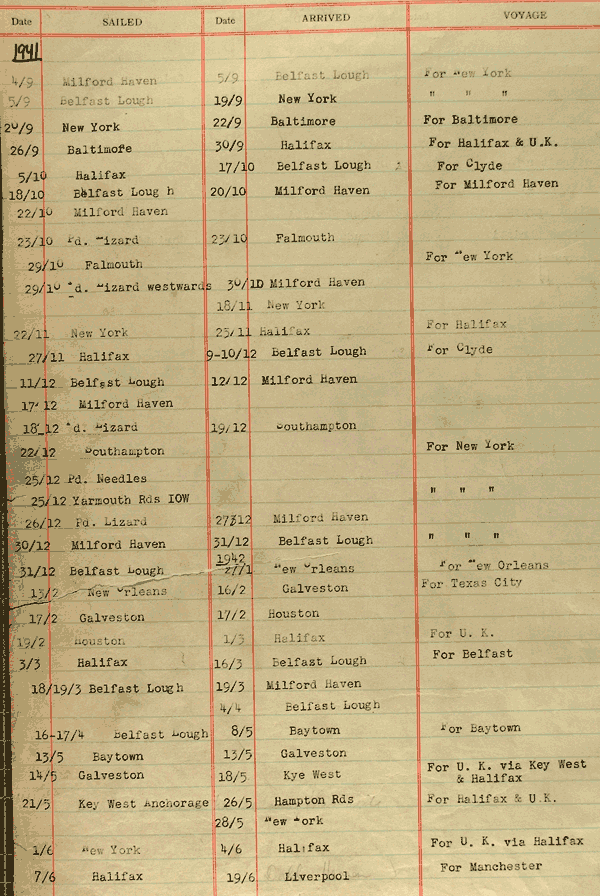 Date SAILED Date ARRIVED VOYAGE
1941
4/9 Milford Haven 5/9 Belfast Lough For New York
5/9 Belfast Lough 19/9 New York " " "
20/9 New York 22/9 Baltimore For Baltimore
26/9 Baltimore 30/9 Halifax For Halifax & U.K.
5/10 Halifax 17/10 Belfast Lough For Clyde
18/10 Belfast Loug h 20/10 Milford Haven For Milford Haven
22/10 Milford Haven
23/10 Pd. Lizard 23/10 Falmouth
29/10 Falmouth For New York
29/10 Pd. Lizard westwards 30/10 Milford Haven
18/11 New York
22/11 New York 25/11 Halifax For Halifax
27/11 Halifax 9-10/12 Belfast Lough For Clyde
11/12 Belfast Lough 12/12 Milford Haven
17/12 Milford Haven
18/12 Pd. Lizard 19/12 Southampton
22/12 Southampton For New York
25/12 Pd. Needles
25/12 Yarmouth Rds IOW " " "
26/12 Pd. Lizard 27312 Milford Haven
30/12 Milford Haven 31/12 Belfast Lough " " "
1942
31/12 Belfast Lough 27/1 New Orleans For New Orleans
13/2 New Orleans 16/2 Galveston For Texas City
17/2 Galveston 17/2 Houston
19/2 Houston 1/3 Halifax For U. K.
3/3 Halifax 16/3 Belfast Lough For Belfast
18/19/3 Belfast Lough 19/3 Milford Haven
4/4 Belfast Lough
16-17/4 Belfast Lough 8/5 Baytown For Baytown
13/5 Baytown 13/5 Galveston
14/5 Galveston 18/5 Kye West For U. K. via Key West
& Halifax
21/5 Key West Anchorage 26/5 Hampton Rds For Halifax & U.K.
28/5 New York
1/6 New York 4/6 Halifax For U. K. via Halifax
7/6 Halifax 19/6 Liverpool For Manchester